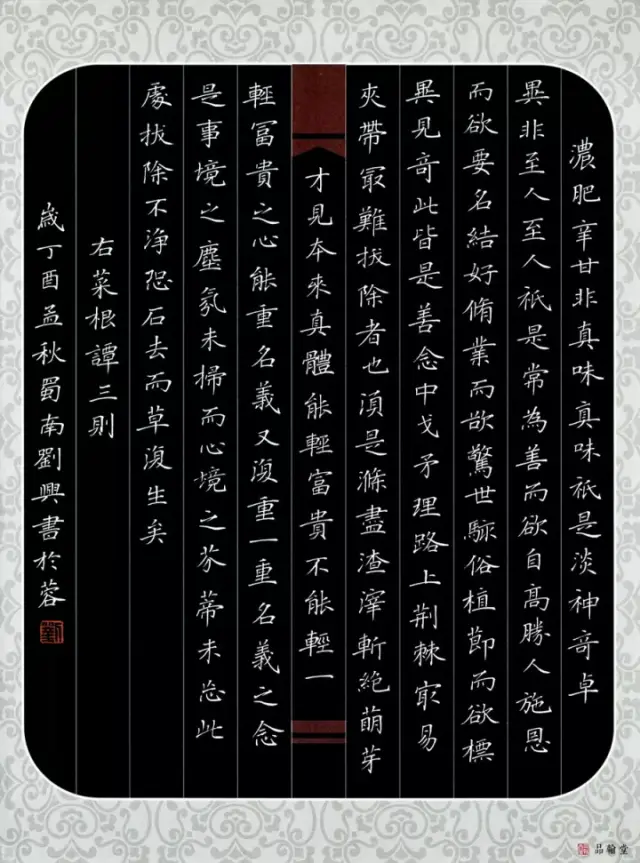 濃肥辛甘非真味真味衹是淡神奇卓
異非至人至人衹是常為善而欲自高勝人施恩
而欲要名結好脩業而欲驚世駭俗植節而欲標
異見奇此皆是善念中戈矛理路上荆棘冣易
夾帶冣難拔除者也湏是滌盡渣滓斬絶萌芽
才見本來真體能輕富貴不能輕一
輕冨貴之心能重名義又復重一重名義之念
是事境之塵氛未掃而心境之芥蒂未忘此
處拔除不浄恐石去而草復生矣
右菜根譚三則
歲丁酉孟秋蜀南劉興書於蓉
劉
品翰堂